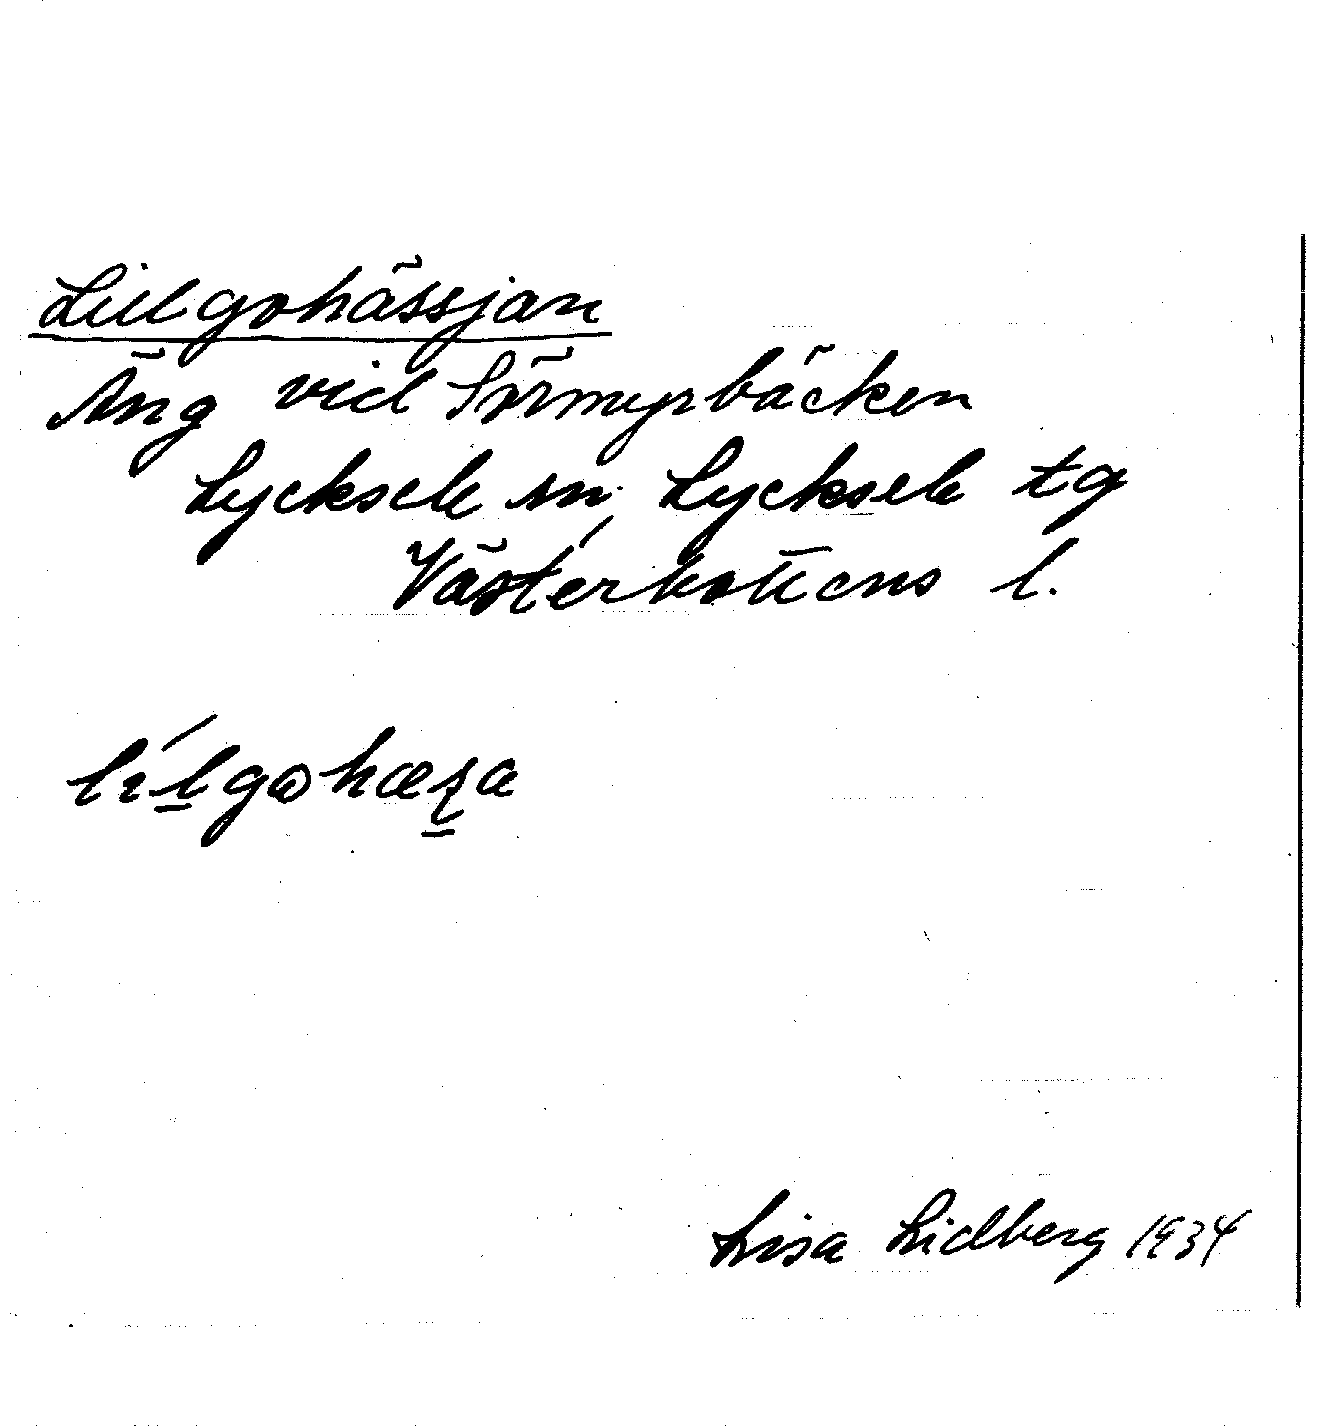 Lillgohässjan
Äng vid Sörmyrbäcken
Lycksele sn, Lycksele tg
Västerbottens l.
Lisa Lidberg 1934